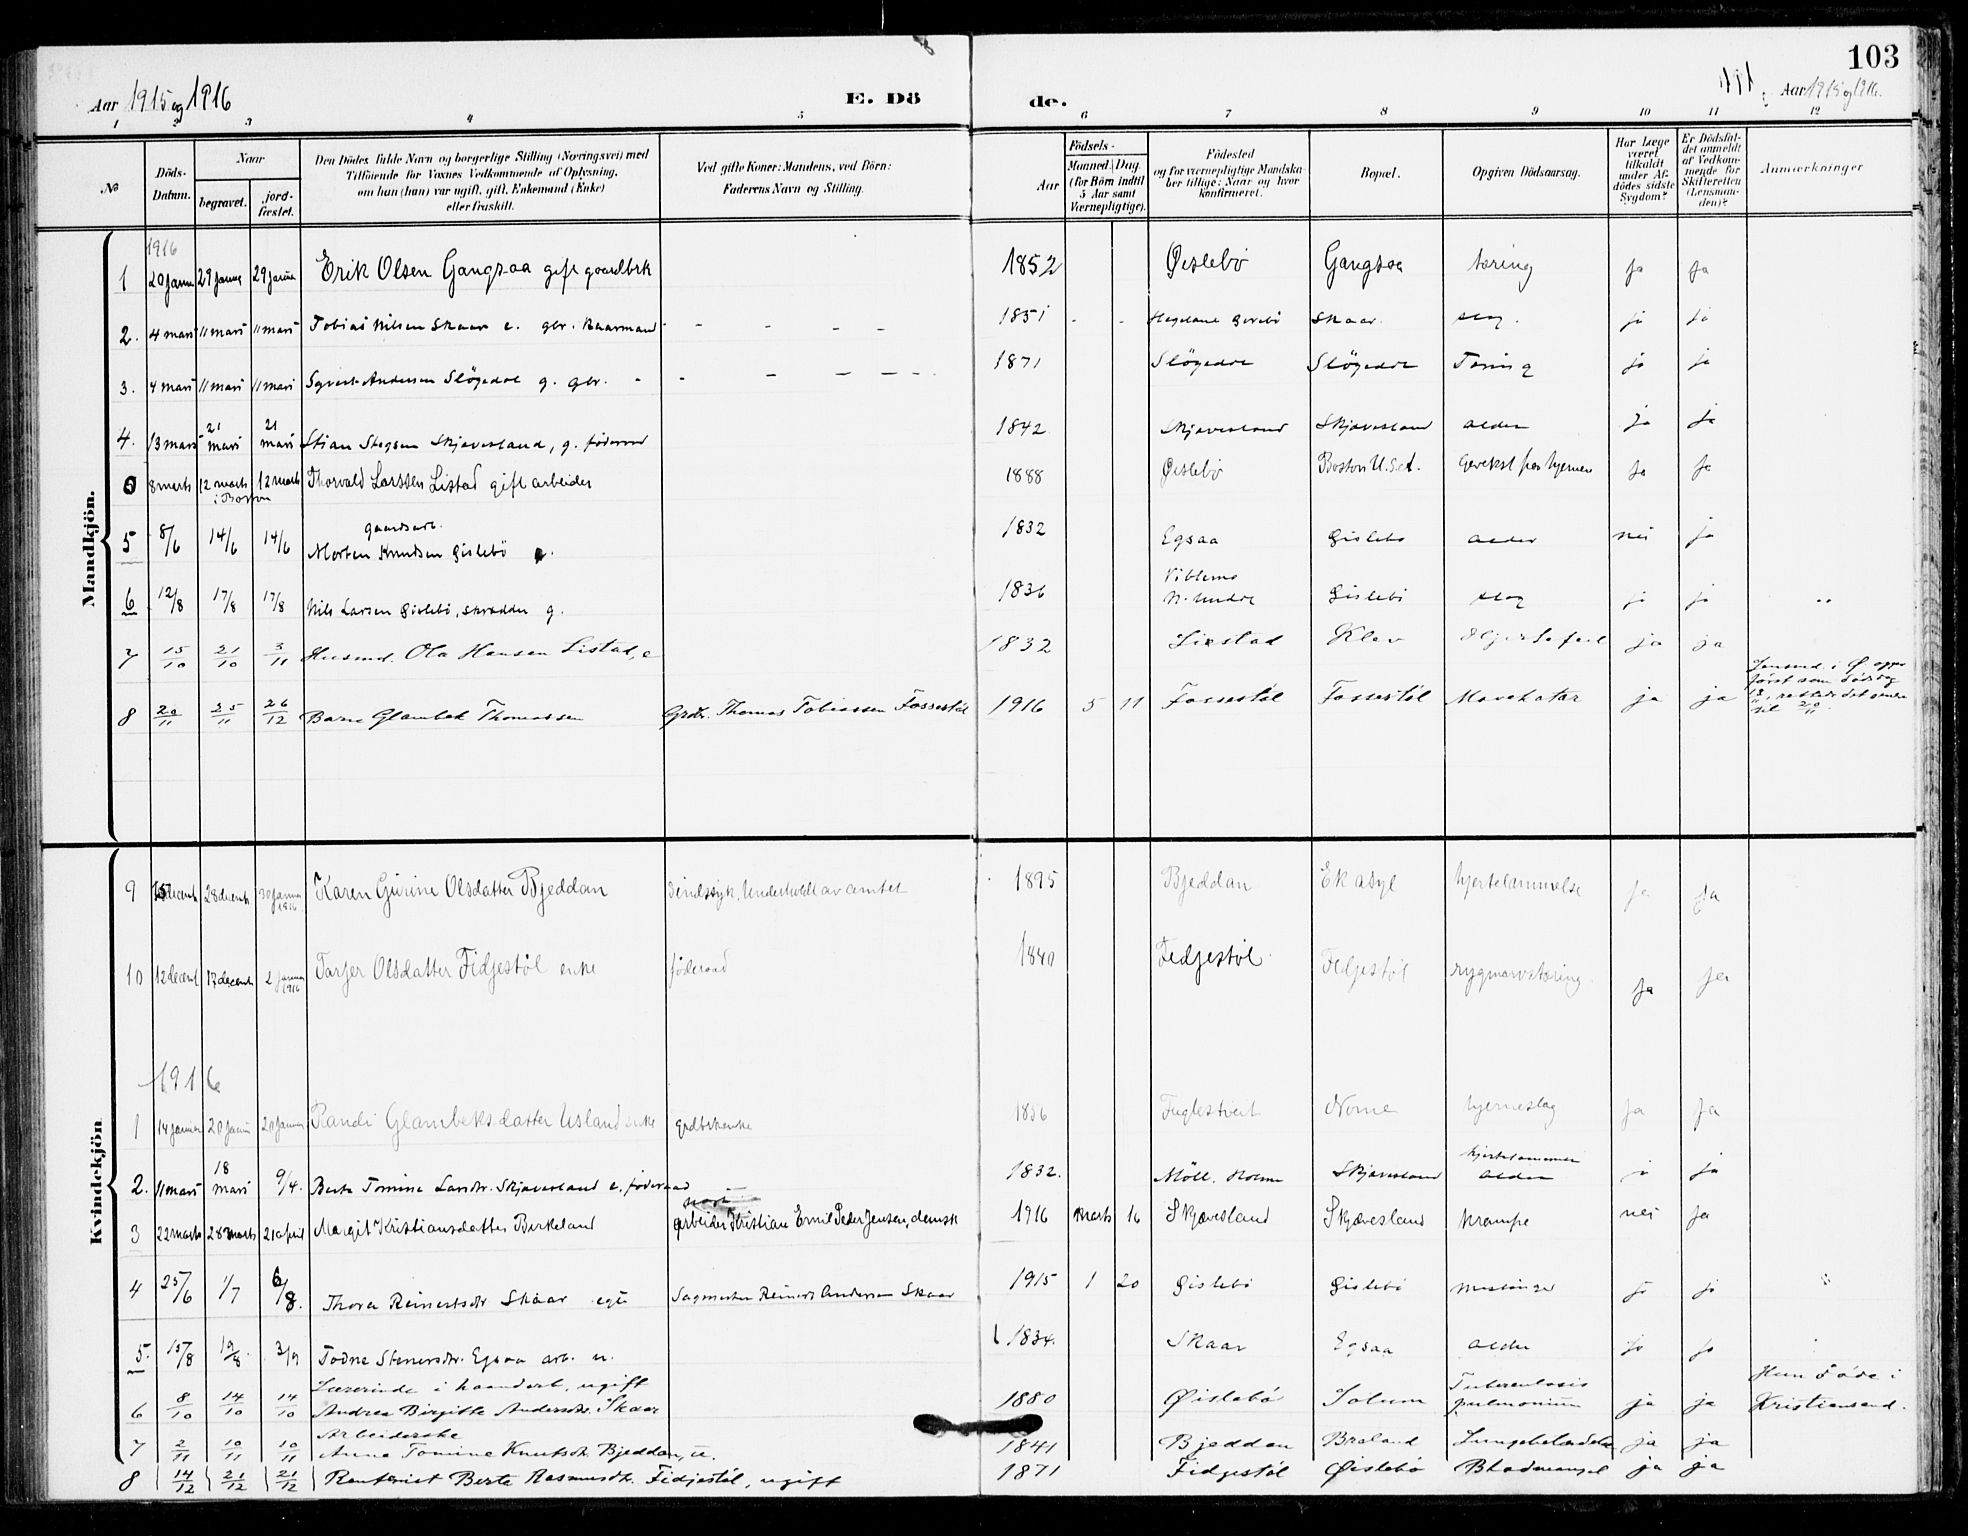 103
Aar 1915 og 1916 E. Dö de. Aar 1915 og 1916.
1 2 3 4 5 6 7 8 9 10 11 12
№ Döds-Datum. Naar begravet. jordfæstet. Den Dödes fulde Navn og borgerlige Stilling (Næringsvei) med Tilföiende for Voxnes Vedkommende af Oplysning, om han (hun) var ugift, gift, Enkemand (Enke) eller fraskilt. Ved gifte Koner: Mandens, ved Börn: Faderens Navn og Stilling. Aar Födsels- Maaned. Dag. (for Börn indtil 5 Aar samt Værnepligtige). Födested og for værnepligtige Mandskaber tillige: Naar og hvor konfirmeret. Bopæl. Opgiven Dödsaarsag. Har Læge været tilkaldt under Afdödes sidste Sygdom? Er Dödsfaldet anmeldt af Vedkommende for Skifteretten (Lensmanden)? Anmærkninger
Mandkjön.
1916
1 20 Januar 29 Januar 29 Januar Erik Olsen Gangsaa gift gaardbrk 1852 Øislebö Gangsaa tæring ja ja
2. 4 mars 11 mars 11 mars Tobias Nilsen Skaar e. gbr. 1851 Skaar. slag. ja ja
3. 4 mars 11 mars 11 mars Syvert Andersen Slögedal g. gbr. 1871 Slögedal Slögedal Tæring ja ja
4. 13 mars 21 mars 21 mars Stian Skjævesland, g. föderaad 1842 Skjævesland Skjævesland alder ja ja
0 8 marts 12 marts i Boston 12 marts Thorvald Larssen Listad gift arbeider 1888 Øislebö Boston U.S.A. Gevekst paa hjernen ja ja
5 8/6 14/6 14/6 gaardsarb. Morten Knudsen Öislebö e. 1832 Egsaa Öislebö alder nei ja
6 12/8 17/8 17/8 Nils Larsen Öislebö, skrædder g. 1836 Viblemo N. Undal Öislebö slag ja ja "
7 15/10 21/10 3/11 Husmd. Ola Hansen Listad, e 1832 Listad Klev Hjertefeil ja ja
8 20/11 25/11 26/12 Barne Glambek Thomassen Grdbr. Thomas Tobiassen Fossestöl 1916 5 11 Fossestöl Fossestöl Mavekatar ja ja Lensmd. i Ø. opga först som dödsdag 18/11, rettede det senere til 20/11.
Kvindekjön
9 15 decemb 28 decemb 30 Januar 1916 Karen Gurine Olsdatter Bjeddan Sindssyk, Underholdt av amtet 1895 Bjeddan Ek asyl hjertelammelse ja ja
10 12 decemb 17 decemb 2 januar 1916 Tarjer Olsdatter Fidjestöl enke föderaad 1840 Fidjestöl Fidjestöl rygmarvstæring ja ja
1916
1 14 Januar 20 Januar 20 Januar Randi Glambeksdatter Usland enke grdbrkenke 1856 Fuglestveit Nome hjerneslag ja ja
2. 11 mars 18 mars 9/4. Berte Tomine Larsdtr. Skjævesland e. föderaad 1832. Möll, Holme Skjævesland hjertelammelse alder ja ja
3 22 marts 28 marts 21 april Margit Kristiansdatter Birkeland arbeider Kristian Emil Peder Jensen, dansk 1916 Marts 16 Skjævesland Skjævesland krampe nei ja
4 25/6 1/7 6/8. Thora Reinertsdtr Skaar egte Sagmester Reinert Andersen Skaar 1915 1 20 Öislebö Öislebö meslinger ja ja "
5. 15/8 19/8. 3/9 Todne Stenersdtr. Egsaa arb. u. 1834. Skaar Egsaa alder ja ja
6 8/10 14/10 14/10 Lærerinde i haandarb., ugift Andrea Birgitte Andersdtr. Skaar 1880 Øislebö Solum Tuberculosis pulmonium ja ja Hun döde i Kristiansand.
7 2/11 10/11 10/11 Arbeiderske Anne Tomine Knutsdtr. Bjeddan, u. 1841 Bjeddan Braland Lungebetændelse ja ja
8 14/12 21/12 21/12 Berte Rasmusdtr. Fidjestöl, ugift 1871 Fidjestöl Øislebö Blodmangel ja ja